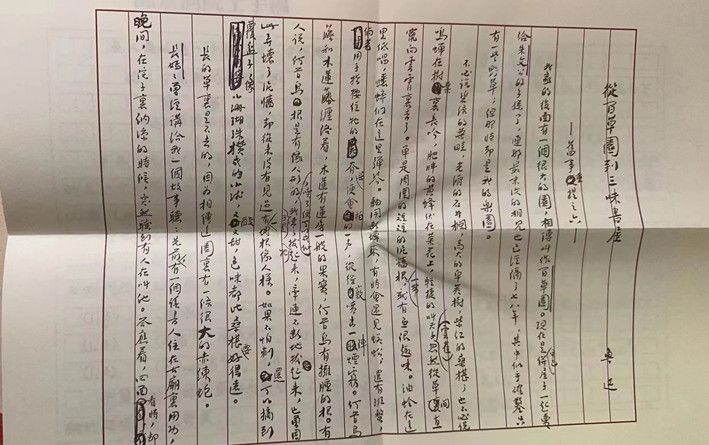 從百草園到三味書屋
—舊事重提之六— 魯迅
我家的後面有一個很大的園，相傳叫作百草園。現在是早已併屋子一起賣
給朱文公的子孫了，連那最末次的相見也已經隔了七八年，其中似乎確鑿只
有一些野草；但那時却是我的樂園。
不必說碧綠的菜畦，光滑的石井欄，高大的皂莢樹，紫紅的桑椹；也不必說
鳴蟬在樹葉裏長吟，肥胖的黃蜂伏在菜花上，輕捷的叫天子（雲雀）忽然從草間直
竄向雲霄裏去了。單是周圍的短短的泥牆根一帶，就有無限趣味。油蛉在這
里低唱，蟋蟀們在這里彈琴。翻開斷磚來，有時會遇見蜈蚣；還有斑蝥，
倘若用手指按住牠的脊梁，便會拍的一聲，從後竅噴出一陣煙霧。何首烏
藤和木蓮藤纏絡着，木蓮有蓮房一般的果實，何首烏有擁腫的根。有
人說，何首烏根是有像人形的，吃了便可以成仙，我於是常常拔它起來，牽連不斷地拔起來，也曾因
此弄壞了泥牆，却從來沒有見過有一塊根像人樣。如果不怕刺，還可以摘到
覆盆子，像小珊瑚珠攢成的小球，又酸又甜，色味都比桑椹好得遠。
長的草裏是不去的，因為相傳這園裏有一條很大的赤練蛇。
長媽媽曾經講給我一個故事聽：先前，有一個讀書人住在古廟裏用功，
晚間，在院子裏納涼的時候，突然聽到有人在叫他。答應着，四面看時，却